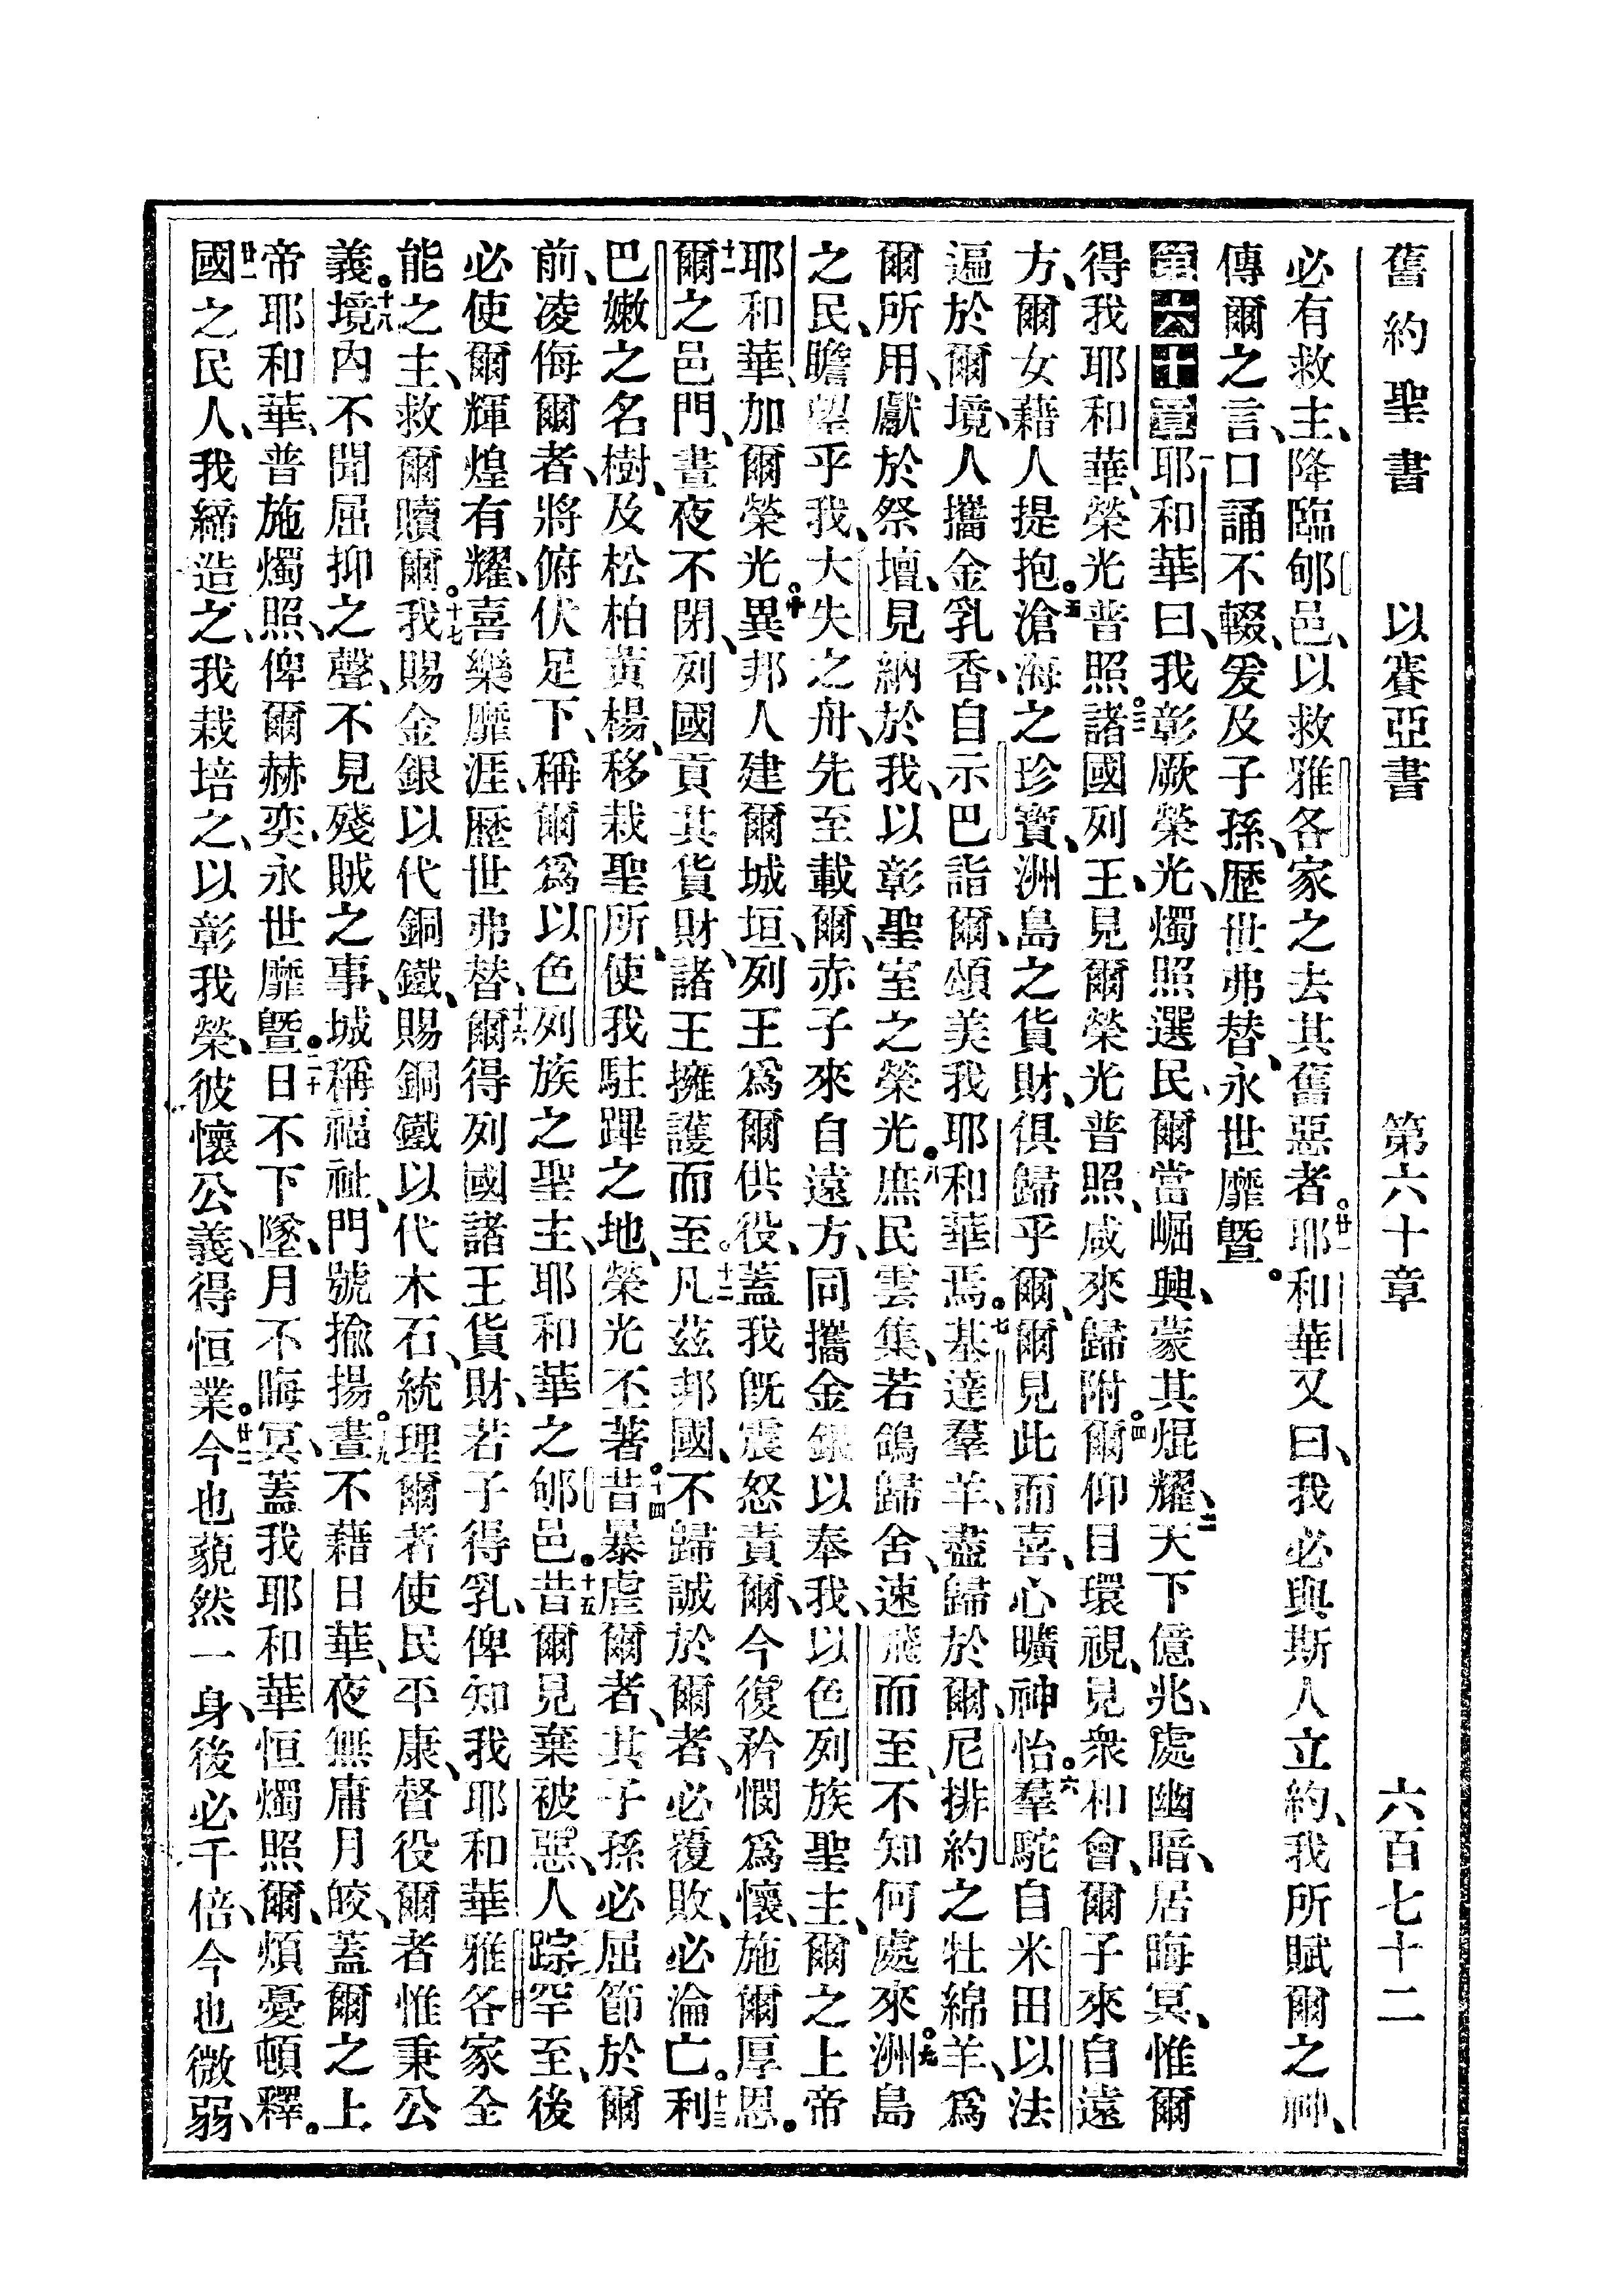 舊約聖書 以賽亞書 第六十章 六百七十二
必有救主、降臨郇邑、以救雅各家之去其舊惡者。廿一耶和華又曰、我必與斯人立約、我所賦爾之神、
傳爾之言、口誦不輟、爰及子孫、歷世弗替、永世靡曁。
第六十章一耶和華曰、我彰厥榮光、燭照選民、爾當崛興、蒙其焜耀、二天下億兆、處幽暗、居晦冥、惟爾
得我耶和華、榮光普照。三諸國列王、見爾榮光普照、咸來歸附。四爾仰目環視、見衆和會、爾子來自遠
方、爾女藉人提抱。五滄海之珍寶、洲島之貨財、俱歸乎爾、爾見此而喜、心曠神怡。六羣駝自米田以法
遍於爾境、人攜金乳香、自示巴詣爾、頌美我耶和華焉。七基達羣羊、盡歸於爾、尼排約之牡綿羊、爲
爾所用、獻於祭壇、見納於我、以彰聖室之榮光。八庶民雲集、若鴿歸舍、速飛而至、不知何處來。九洲島
之民、瞻望乎我、大失之舟、先至載爾、赤子來自遠方、同攜金銀以奉我、以色列族聖主、爾之上帝
耶和華、加爾榮光。十異邦人建爾城垣、列王爲爾供役、蓋我旣震怒責爾、今復矜憫爲懷、施爾厚恩。
十一爾之邑門、晝夜不閉、列國貢其貨財、諸王擁護而至。十二凡茲邦國、不歸誠於爾者、必覆敗、必淪亡。十三利
巴嫩之名樹、及松柏黃楊、移栽聖所、使我駐蹕之地、榮光丕著。十四昔暴虐爾者、其子孫必屈節於爾
前、凌侮爾者、將俯伏足下、稱爾爲以色列族之聖主、耶和華之郇邑。十五昔爾見棄被惡、人踪罕至、後
必使爾輝煌有耀、喜樂靡涯、歷世弗替、十六爾得列國諸王貨財、若子得乳、俾知我耶和華雅各家全
能之主、救爾贖爾。十七我賜金銀以代銅鐵、賜銅鐵以代木石、統理爾者使民平康、督役爾者惟秉公
義。十八境內不聞屈抑之聲、不見殘賊之事、城稱福祉、門號揄揚。十九晝不藉日華、夜無庸月皎、蓋爾之上
帝耶和華、普施燭照、俾爾赫奕、永世靡曁。二十日不下墜、月不晦冥、蓋我耶和華恒燭照爾、煩憂頓釋。
廿一國之民人、我締造之、我栽培之、以彰我榮、彼懷公義、得恒業。廿二今也藐然一身、後必千倍、今也微弱、